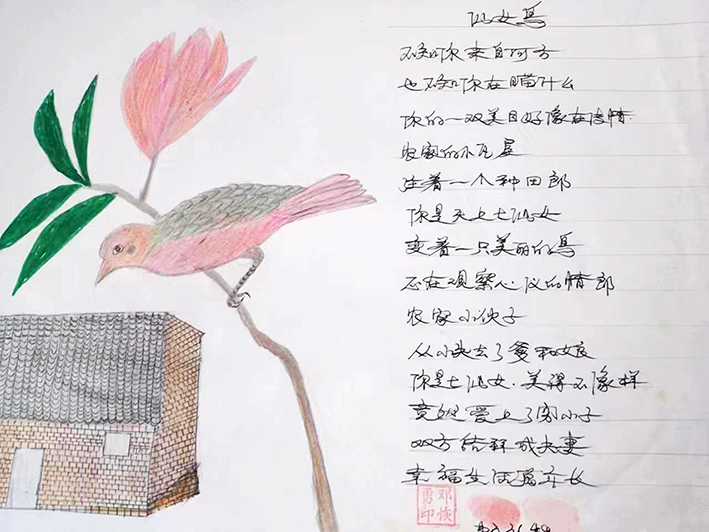 仙女鸟
不知你来自何方
也不知你在瞄什么
你的一双美目好像在传情
农家的小瓦屋
住着一个种田郎
你是天上七仙女
变着一只美丽的鸟
正在观察心仪的情郎
农家小伙子
从小失去了爹和娘
你是七仙女.美得不像样
竟然爱上了穷小子
双方结拜成夫妻
幸福生活万年长
邓恢勇印